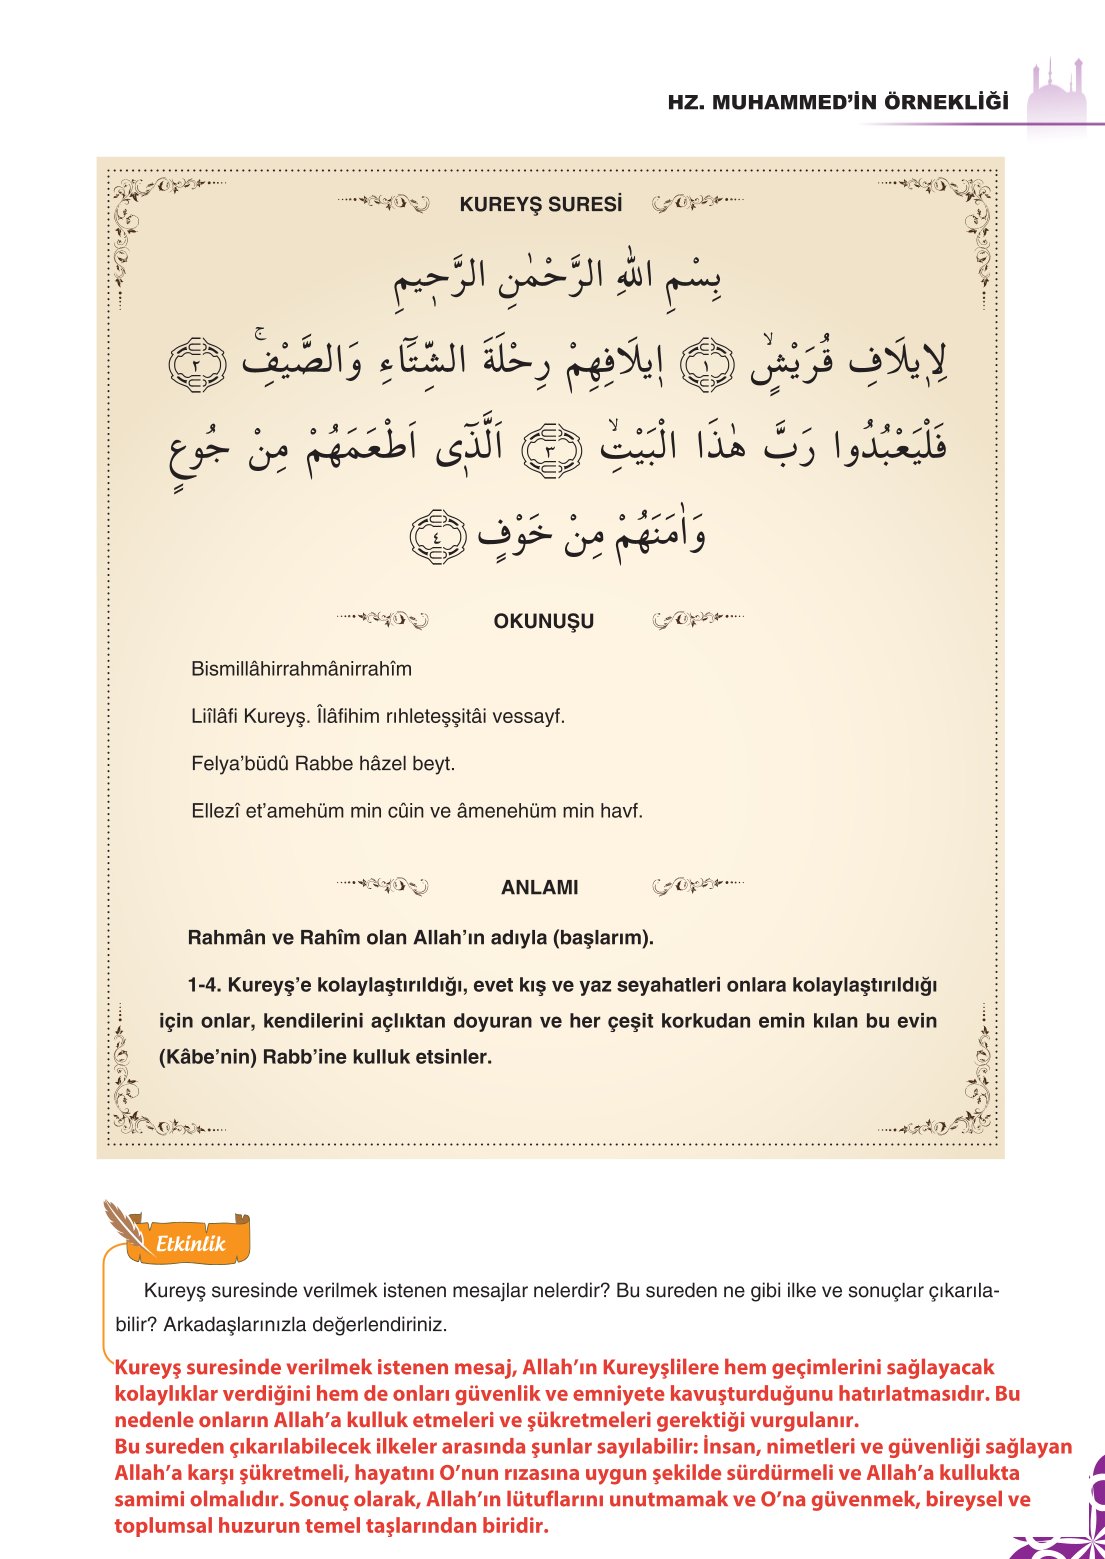 HZ. MUHAMMED’İN ÖRNEKLİĞİ
KUREYŞ SURESİ
بِسْمِ اللّٰهِ الرَّحْمٰنِ الرَّح۪يمِ
لِا۪يلَافِ قُرَيْشٍۙ ﴿١﴾ ا۪يلَافِهِمْ رِحْلَةَ الشِّتَٓاءِ وَالصَّيْفِۚ ﴿٢﴾
فَلْيَعْبُدُوا رَبَّ هٰذَا الْبَيْتِۙ ﴿٣﴾ اَلَّذ۪ٓى اَطْعَمَهُمْ مِنْ جُوعٍ
وَاٰمَنَهُمْ مِنْ خَوْفٍ ﴿٤﴾
OKUNUŞU
Bismillâhirrahmânirrahîm
Liîlâfi Kureyş. Îlâfihim rıhleteşşitâi vessayf.
Felya’büdû Rabbe hâzel beyt.
Ellezî et’amehüm min cûin ve âmenehüm min havf.
ANLAMI
Rahmân ve Rahîm olan Allah’ın adıyla (başlarım).
1-4. Kureyş’e kolaylaştırıldığı, evet kış ve yaz seyahatleri onlara kolaylaştırıldığı
için onlar, kendilerini açlıktan doyuran ve her çeşit korkudan emin kılan bu evin
(Kâbe’nin) Rabb’ine kulluk etsinler.
Etkinlik
Kureyş suresinde verilmek istenen mesajlar nelerdir? Bu sureden ne gibi ilke ve sonuçlar çıkarıla-
bilir? Arkadaşlarınızla değerlendiriniz.
Kureyş suresinde verilmek istenen mesaj, Allah’ın Kureyşlilere hem geçimlerini sağlayacak
kolaylıklar verdiğini hem de onları güvenlik ve emniyete kavuşturduğunu hatırlatmasıdır. Bu
nedenle onların Allah’a kulluk etmeleri ve şükretmeleri gerektiği vurgulanır.
Bu sureden çıkarılabilecek ilkeler arasında şunlar sayılabilir: İnsan, nimetleri ve güvenliği sağlayan
Allah’a karşı şükretmeli, hayatını O’nun rızasına uygun şekilde sürdürmeli ve Allah’a kullukta
samimi olmalıdır. Sonuç olarak, Allah’ın lütuflarını unutmamak ve O’na güvenmek, bireysel ve
toplumsal huzurun temel taşlarından biridir.